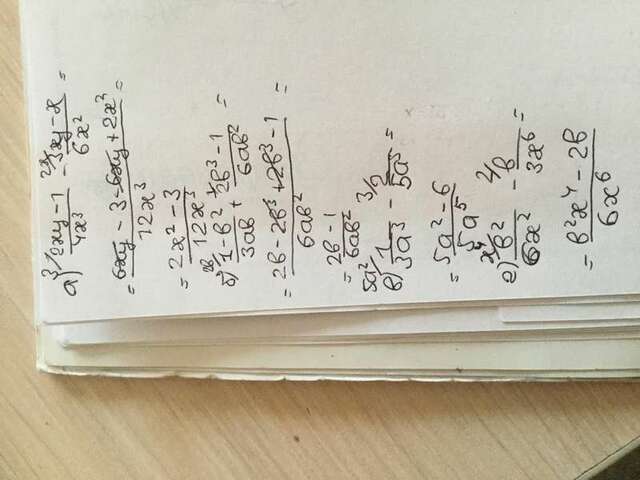 а) ³⁾(2xy-1)/(4x³) - ²ˣ⁾(3xy-x)/(6x²) =
= (6xy-3-6xy+2x³)/(12x³)
= (2x²-3)/(12x³)
б) ²ᵇ⁾(1-b²)/(3ab) + ¹⁾(2b³-1)/(6ab²) =
= (2b-2b³+2b³-1)/(6ab²) =
= (2b-1)/(6ab²)
в) ⁵ᵃ²⁾1/(3a³) - ³⁾2/(5a⁵) =
= (5a²-6)/(5a⁵)
г) ˣ⁴⁾b²/(6x²) - ²⁾b/(3x⁶) =
= (b²x⁴-2b)/(6x⁶)